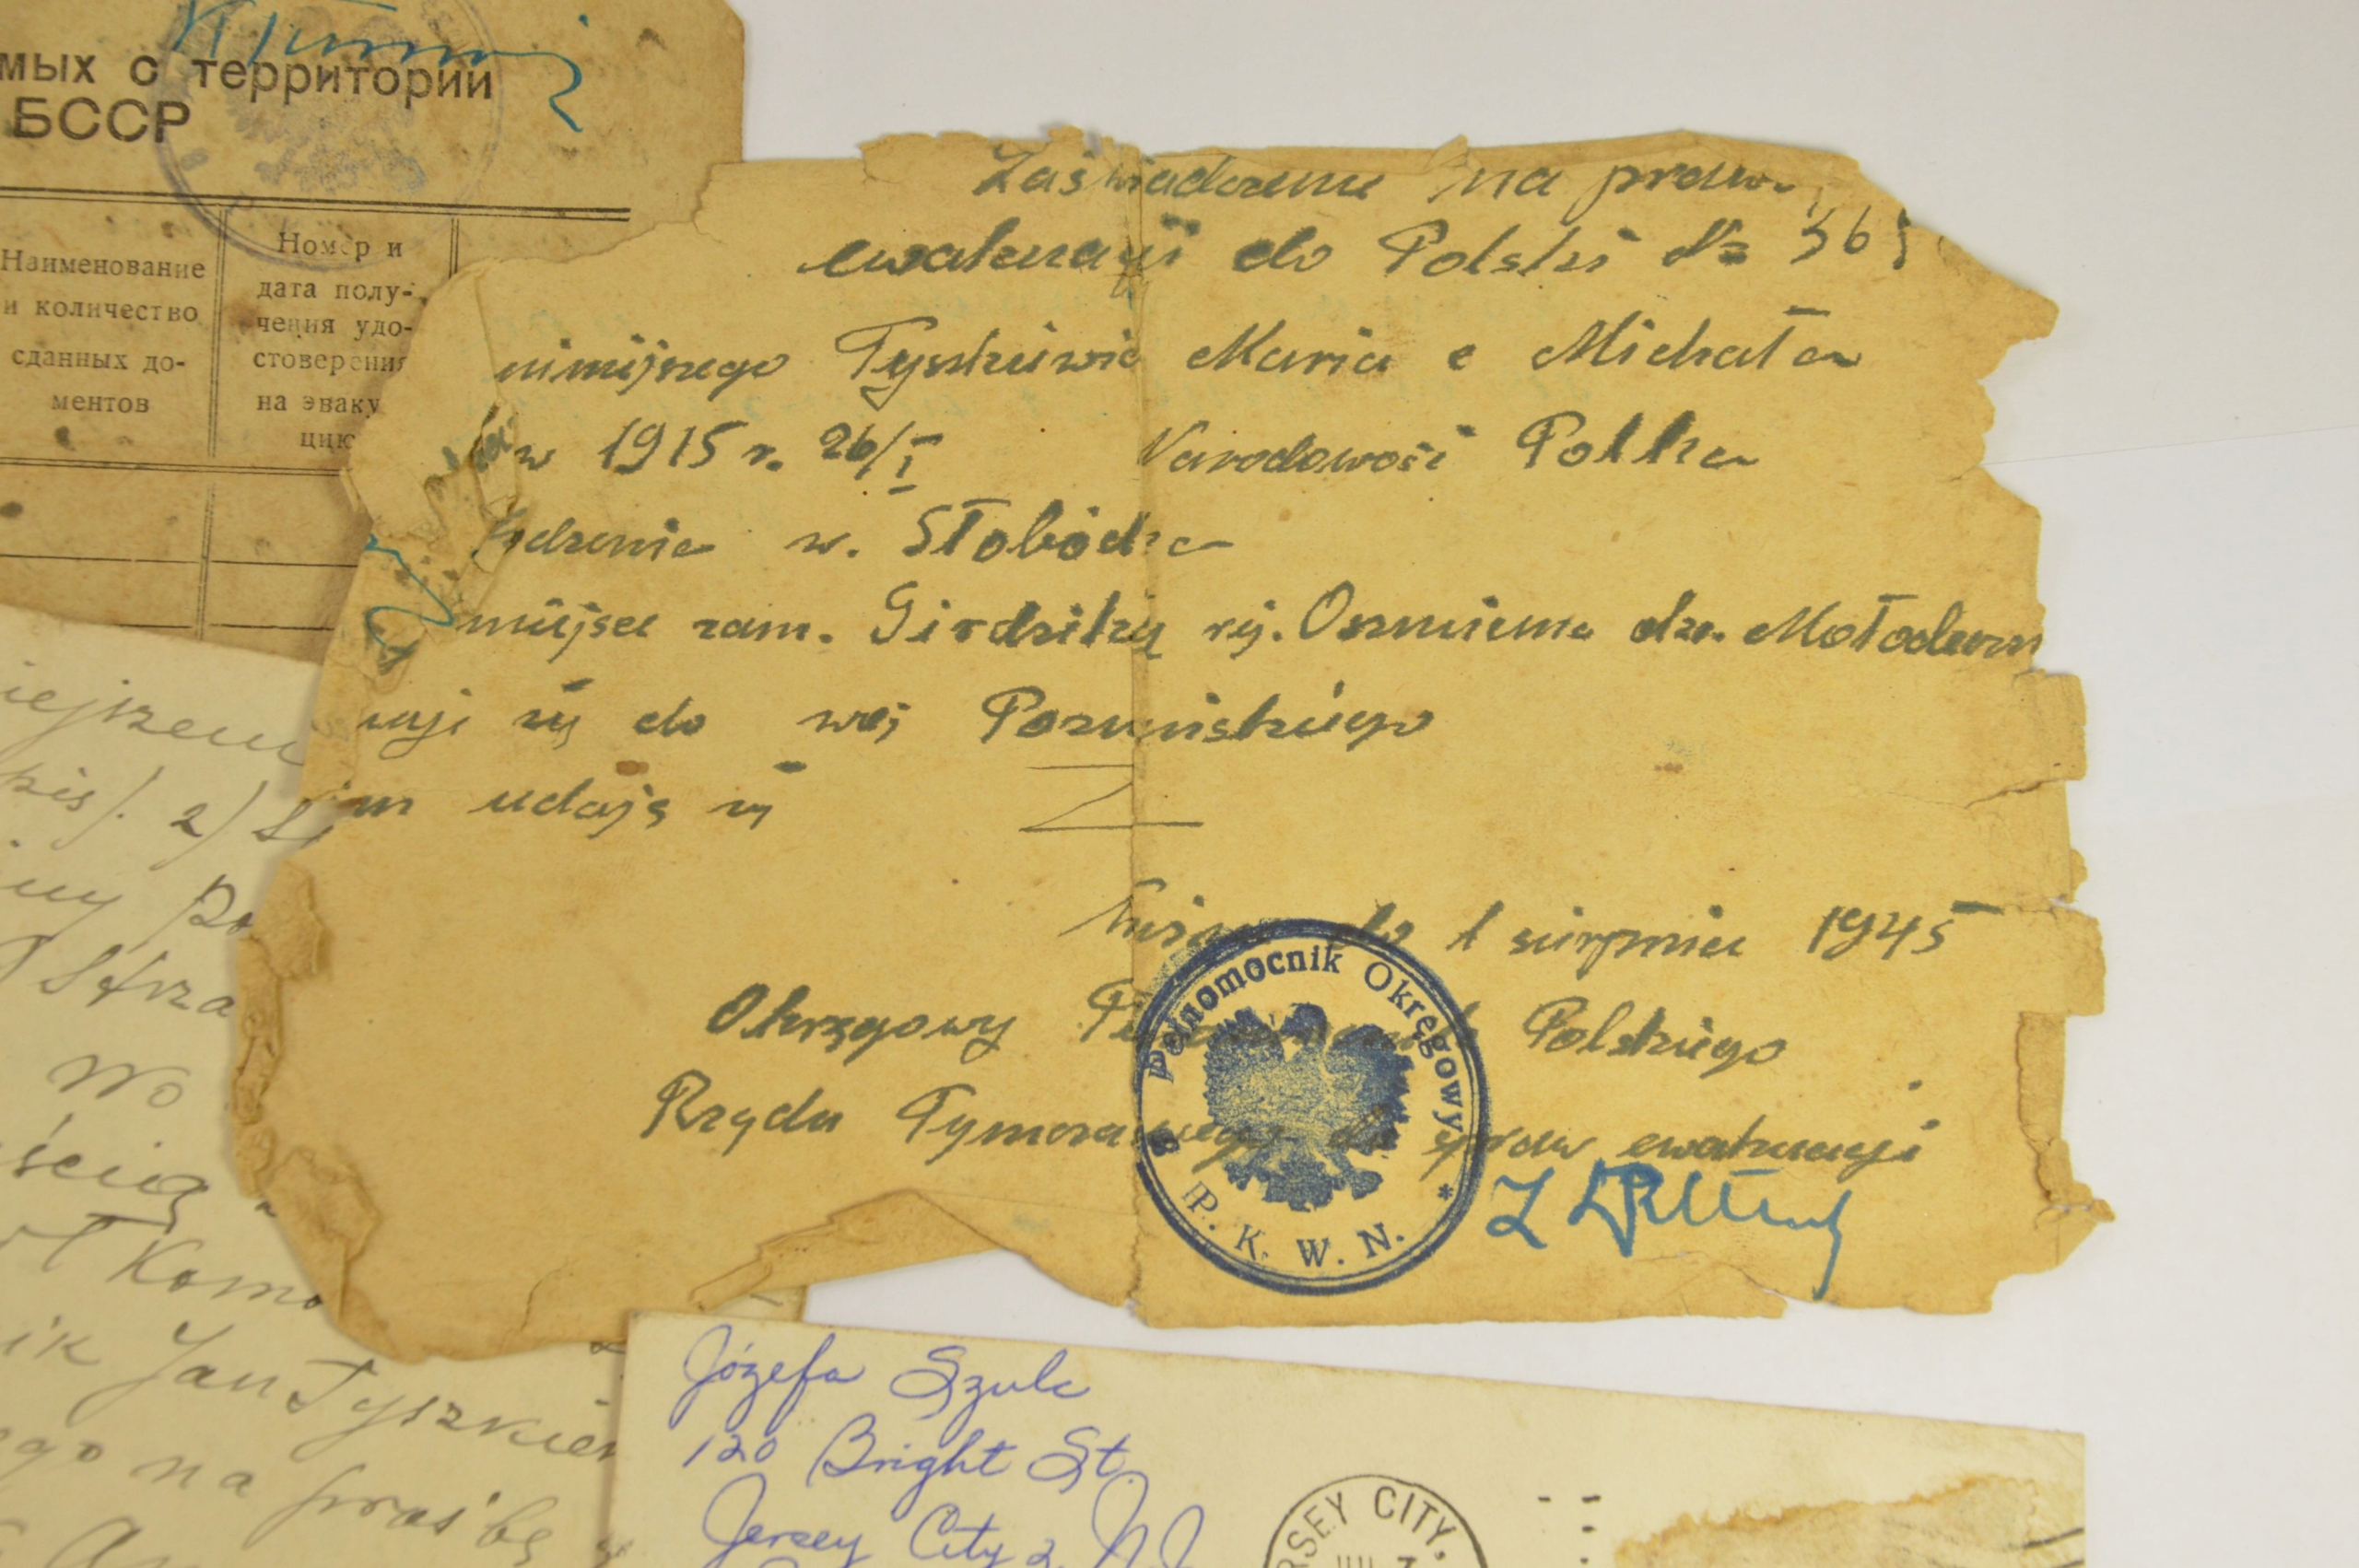 мых с территории
БССР
Наименование
и количество
сданных до-
ментов
Номер и
дата полу-
чения удо-
стоверения
на эваку
цию
Zaświadczenie na prawo
ewakuacji do Polski Nr 365
niniejszego Tyszkiewic Maria c Michała
w 1915 r. 26/I Narodowość Polka
odzenia w. Słobódka
miejsce zam. Girdziky rej. Oszmiana obw. Mołodeczn
uje się do woj Poznańskiego
im udają się
dn 1 sierpnia 1945
Okręgowy Pełnomocnik Polskiego
Rządu Tymczasowego do spraw ewakuacji
Pełnomocnik Okręgowy * P. K. W. N. 8
iejszem
2)
Strza
Wo
ścią
Komo
ik Jan Tyszkiew
ego na prośbę
Józefa Szulc
120 Bright St.
Jersey City 2, N.J.
RSEY CITY,